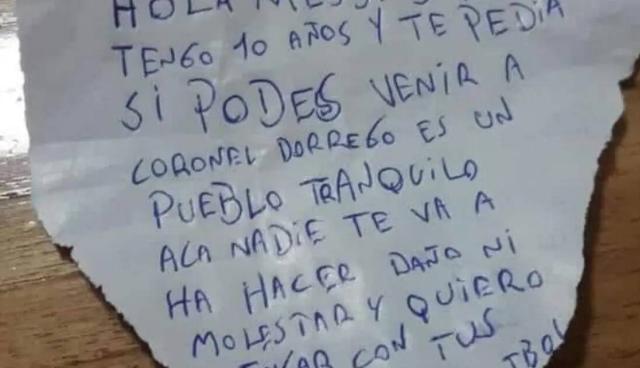 HOLA
TENGO 10 AÑOS Y TE PEDIA
SI PODES VENIR A
CORONEL DORREGO ES UN
PUEBLO TRANQUILO
ACA NADIE TE VA A
HA HACER DAÑO NI
MOLESTAR Y QUIERO
CON TUS